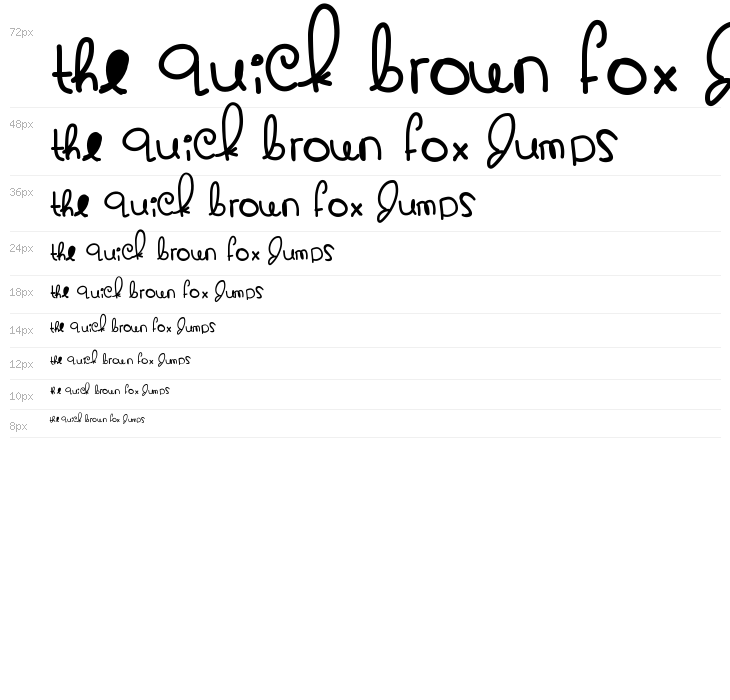 72px the quick brown fox J
48px the quick brown fox Jumps
36px the quick brown fox Jumps
24px the quick brown fox Jumps
18px the quick brown fox Jumps
14px the quick brown fox Jumps
12px the quick brown fox Jumps
10px the quick brown fox Jumps
8px the quick brown fox Jumps